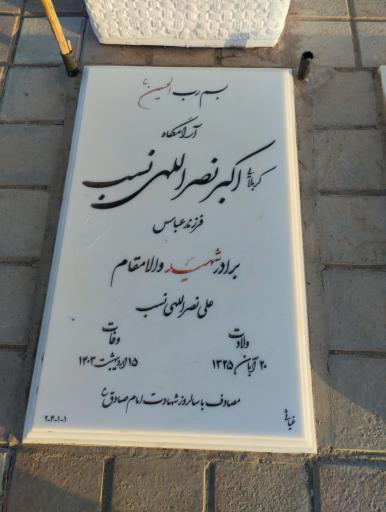 بسم رب الحسین ع
آرامگاه
کربلایی اکبر نصراللهی نسب
فرزند عباس
برادر شهید والامقام
علی نصراللهی نسب
ولادت وفات
۲۰ آبان ۱۳۲۵ ۱۵ اردیبهشت ۱۴۰۳
مصادف با سالروز شهادت امام صادق ع
۲-۴-۱-۱